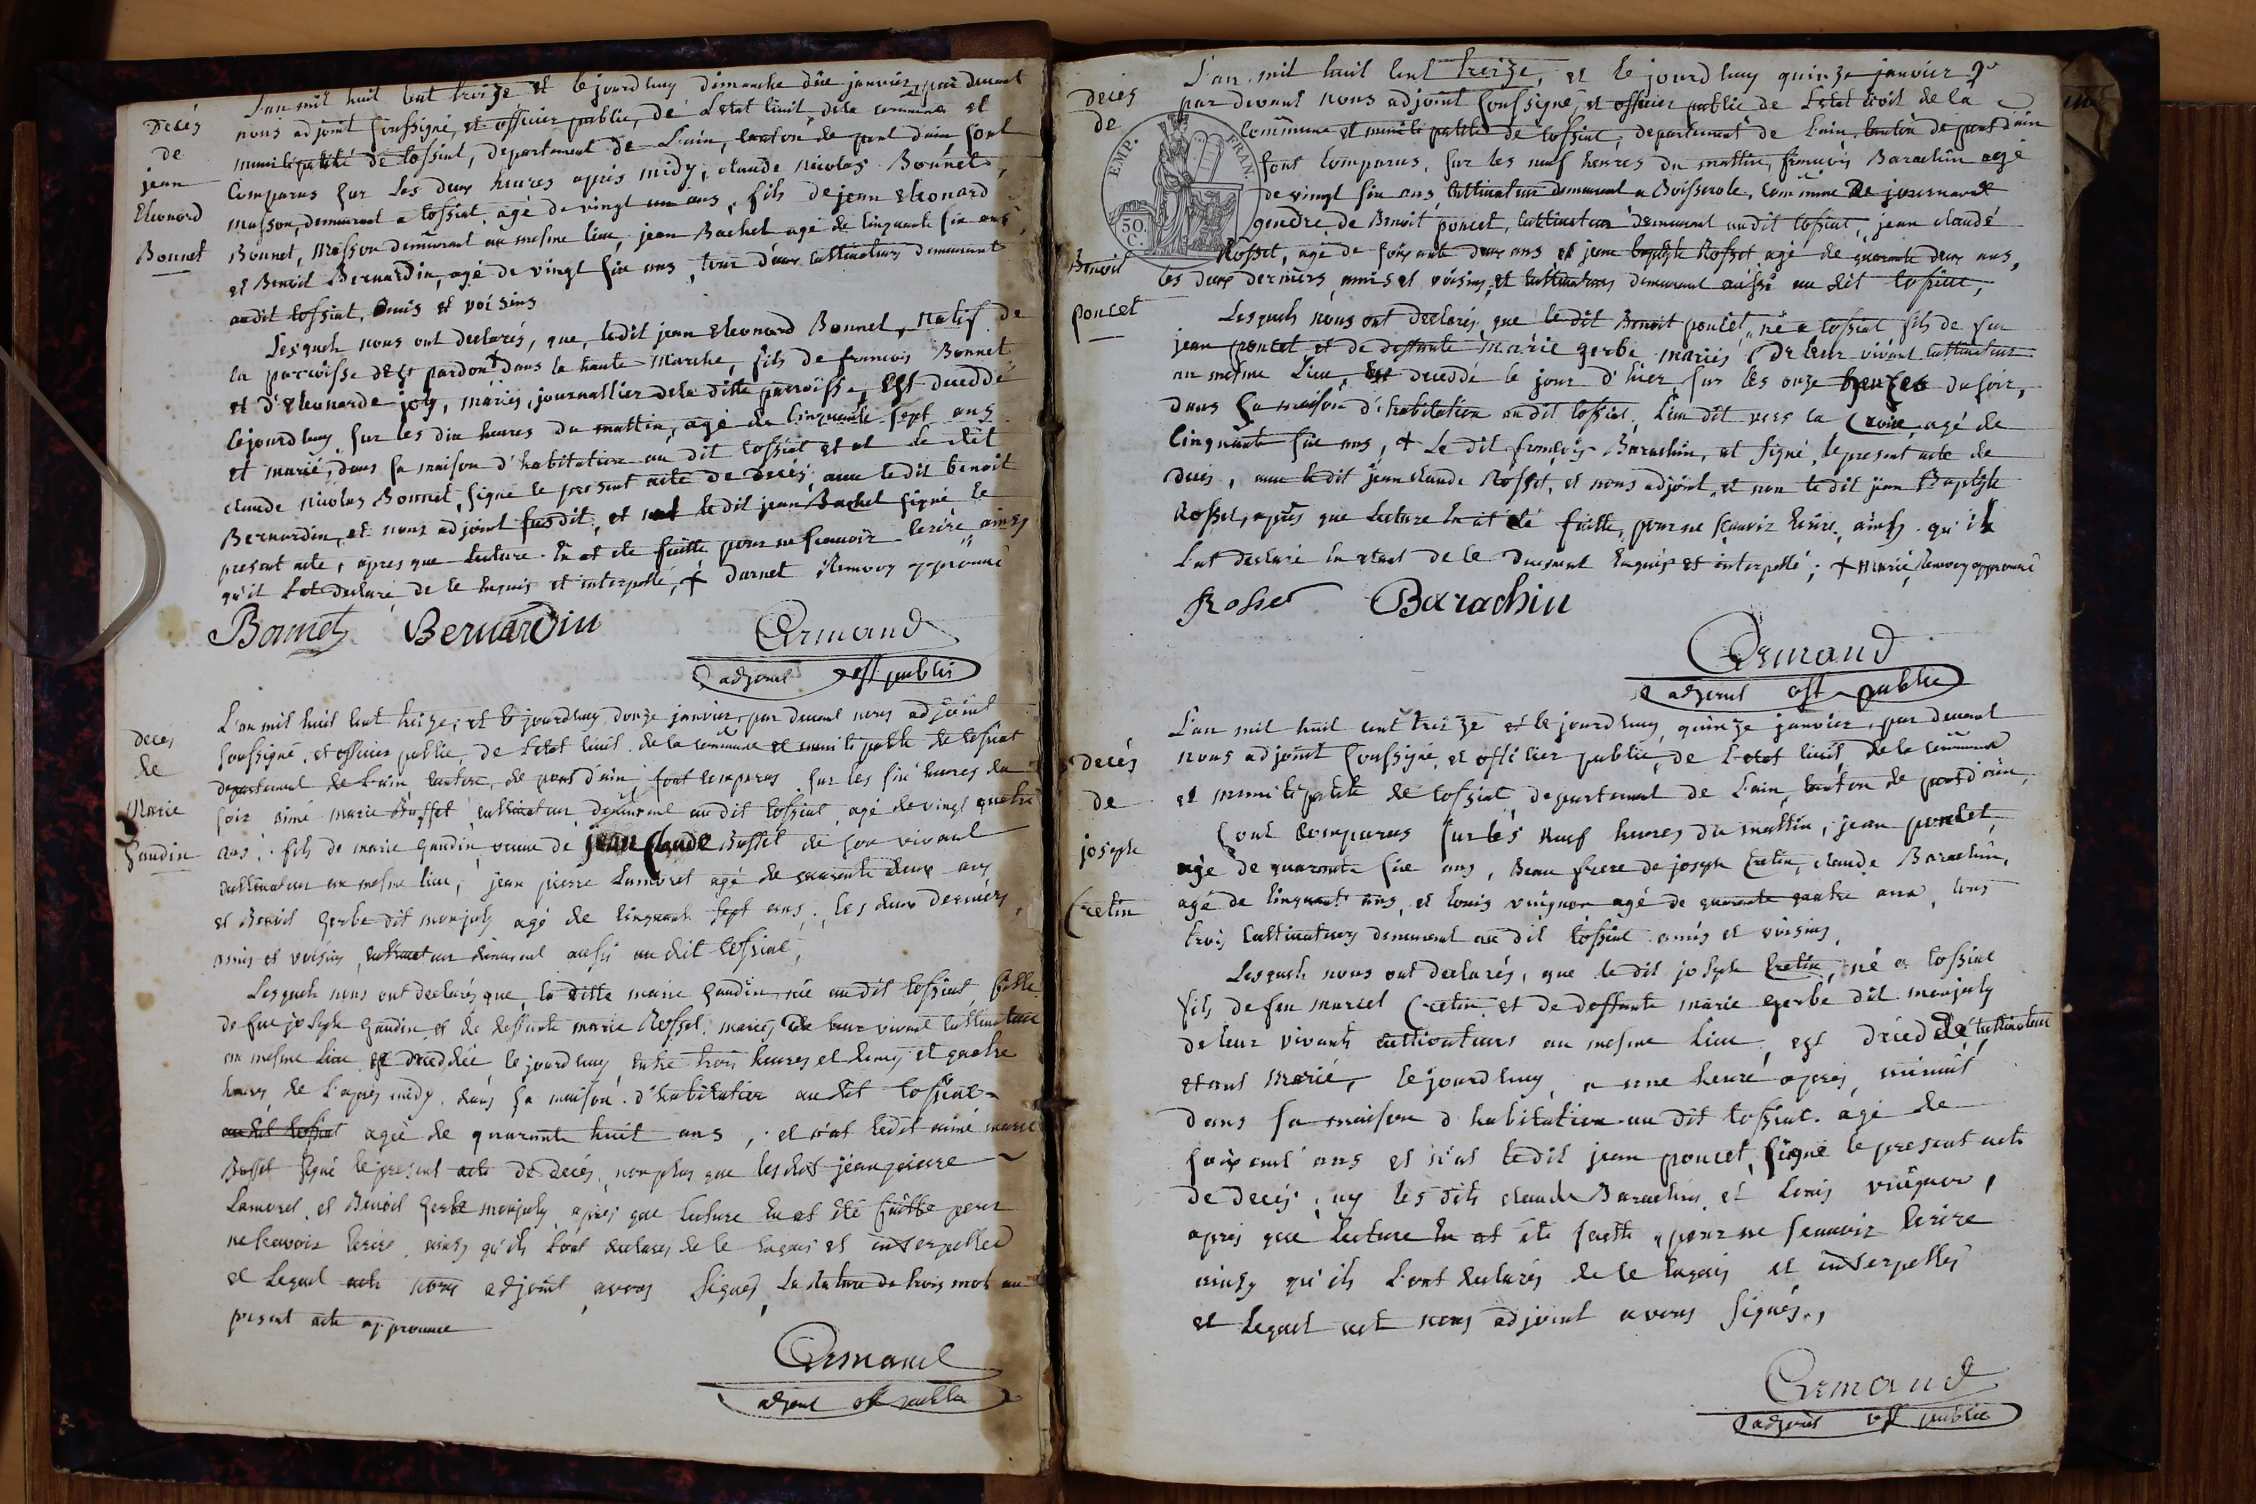 Decés
de
jean
Eleonord
Bonnet
L'an mil huit cent treize et le jourdhuy dimanche dix janvier, par devant
nous adjoint soussigné, et officier public, de L'etat Civil, dela commune et
municipalité de tossiat, departement de L'ain, canton de pont dain sont
Comparus sur Les deux heures après midy, claude nicolas Bonnet,
masson, demeurant a tossiat, agé de vingt un ans, fils de jean eleonard
Bonnet, masson demeurant au mesme lieu, jean Bachet agé de cinquante six ans
et Benoit Bernardin, agé de vingt six ans, tous deux cultivateurs demeurant
audit tossiat, amis et voisins
Lesquels nous ont declarés, que, ledit jean eleonard Bonnet, natif de
la parroisse de st pardon + dans la haute marche, fils de francois Bonnet
et d'Eleonarde joly, mariés, journallier dela ditte parroisse, Est deceddé
cejourdhuy sur les dix heures du mattin, agé de Cinquante sept ans
et marié, dans sa maison d'habitation au dit tossiat et at le dit
claude nicolas Bonnet, signé le present acte de decès, avec ledit benoit
Bernardin, et nous adjoint susdit, et ledit jean Bachet signé le
present acte, apres que Lecture En at ete faitte pour ne scavoir Ecrire ainsy
qu'il L'at declaré de ce Enquis et interpellé, + darnet Renvoy approuvé
Bonnet Bernardin Ermand
adjoint off public
decés
de
Marie
Gaudin
L'an mil huit cent treize, et le jourdhuy douze janvier, par devant nous adjoint
soussigné, et officier public, de L'etat Civil de la commune et municipalité de tossiat
departement de L'ain, canton, de pont d'ain, sont comparus sur les six heures du
soir aimé marie Buffet, cultivateur, demeurant audit tossiat, agé de vingt quatre
ans, fils de marie Gaudin, veuve de jean Claude Buffet de son vivant
cultivateur au mesme lieu, jean pierre Lamoret agé de quarante deux ans
et Benoit Gerbe dit monjoly agé de cinquante sept ans, les deux derniers,
amis et voisins, cultivateur demeurant aussi audit tossiat,
Lesquels nous ont declarés que la ditte marie Gaudin née audit tossiat, fille
de feu joseph Gaudin et de deffunte marie Rosset, mariés, de leur vivant cultivateurs
au mesme Lieu est deceddée le jourdhuy, entre trois heures et demy et quatre
heures de l'après midy, dans sa maison d'habitation audit tossiat
audit tossiat agée de quarante huit ans, et n'at ledit aimé marie
Buffet signé le present acte de decés, non plus que lesdits jean pierre
Lamoret, et Benoit Gerbe monjoly après que lecture En at été faitte pour
ne scavoir Ecrire, ainsy qu'ils L'ont declarés de ce Enquis et interpellés
et Lequel acte nous adjoint, avons signés, La rature de trois mots au
present acte approuvée
Ermand
adjoint off public
decés
de
Benoit
poncet
L'an mil huit cent treize, et le jourdhuy quinze janvier
par devant nous adjoint soussigné, et officier public de L'etat Civil de la
Commune et municipalité de tossiat, departement de L'ain, canton de pont d'ain
EMP. FRAN.
50
C.
sont comparus, sur les neuf heures du mattin, francois Barachin agé
de vingt six ans, cultivateur demeurant a Boisserole, commune de journans
gendre de Benoit poncet, cultivateur demeurant audit tossiat, jean claude
Rosset, agé de soixante deux ans et jean baptiste Rosset agé de quarante deux ans,
les deux derniers, amis et voisins, et cultivateurs demeurant aussi au dit tossiat,
Lesquels nous ont declarés, que le dit Benoit poncet, né a tossiat fils de feu
jean poncet et de deffunte marie gerbe mariés de leur vivant cultivateurs
au mesme Lieu, Est deceddé le jour d'hier, sur les onze heures du soir,
dans sa maison d'habitation au dit tossiat, Lieu dit vers la Croix, agé de
Cinquante six ans, + Le dit francois Barachin, at signé, le present acte de
decés, avec ledit jean claude Rosset, et nous adjoint, et non ledit jean Baptiste
Rosset, après que Lecture En at été faitte, pour ne scavoir Ecrire, ainsy qu'il
L'at declaré En etant de ce duement Enquis et interpellé; + marié, Renvoy approuvé
Rosset Barachin
Ermand
adjoint off public
Decés
de
joseph
Cretin
L'an mil huit cent treize et le jourdhuy, quinze janvier, par devant
nous adjoint soussigné, et officier public, de L'etat Civil, de la commune
et municipalité de tossiat, departement de L'ain, canton de pont d'ain,
sont comparus sur les neuf heures du mattin, jean poncet,
agé de quarante six ans, Beau frere de joseph Cretin, claude Barachin,
agé de cinquante ans, et Louis vuignon agé de quarante quatre ans, tous
trois cultivateurs demeurant audit tossiat amis et voisins,
Lesquels nous ont declarés, que ledit joseph Cretin, né a tossiat
fils de feu marcel Cretin et de deffunte marie Gerbe dit monjoly
de leur vivants cultivateurs au mesme Lieu, est deceddé, cultivateur
etant Marié, le jourdhuy a une heure apres minuit
dans sa maison d'habitation au dit tossiat agé de
soixante ans et n'at ledit jean poncet, signé le present acte
de decés, ny les dits claude Barachin et Louis vuignon,
après que Lecture En at été faitte, pour ne scavoir Ecrire
ainsy qu'ils L'ont declarés de ce Enquis et interpellés
et Lequel acte nous adjoint avons signés.,
Ermand
adjoint off public